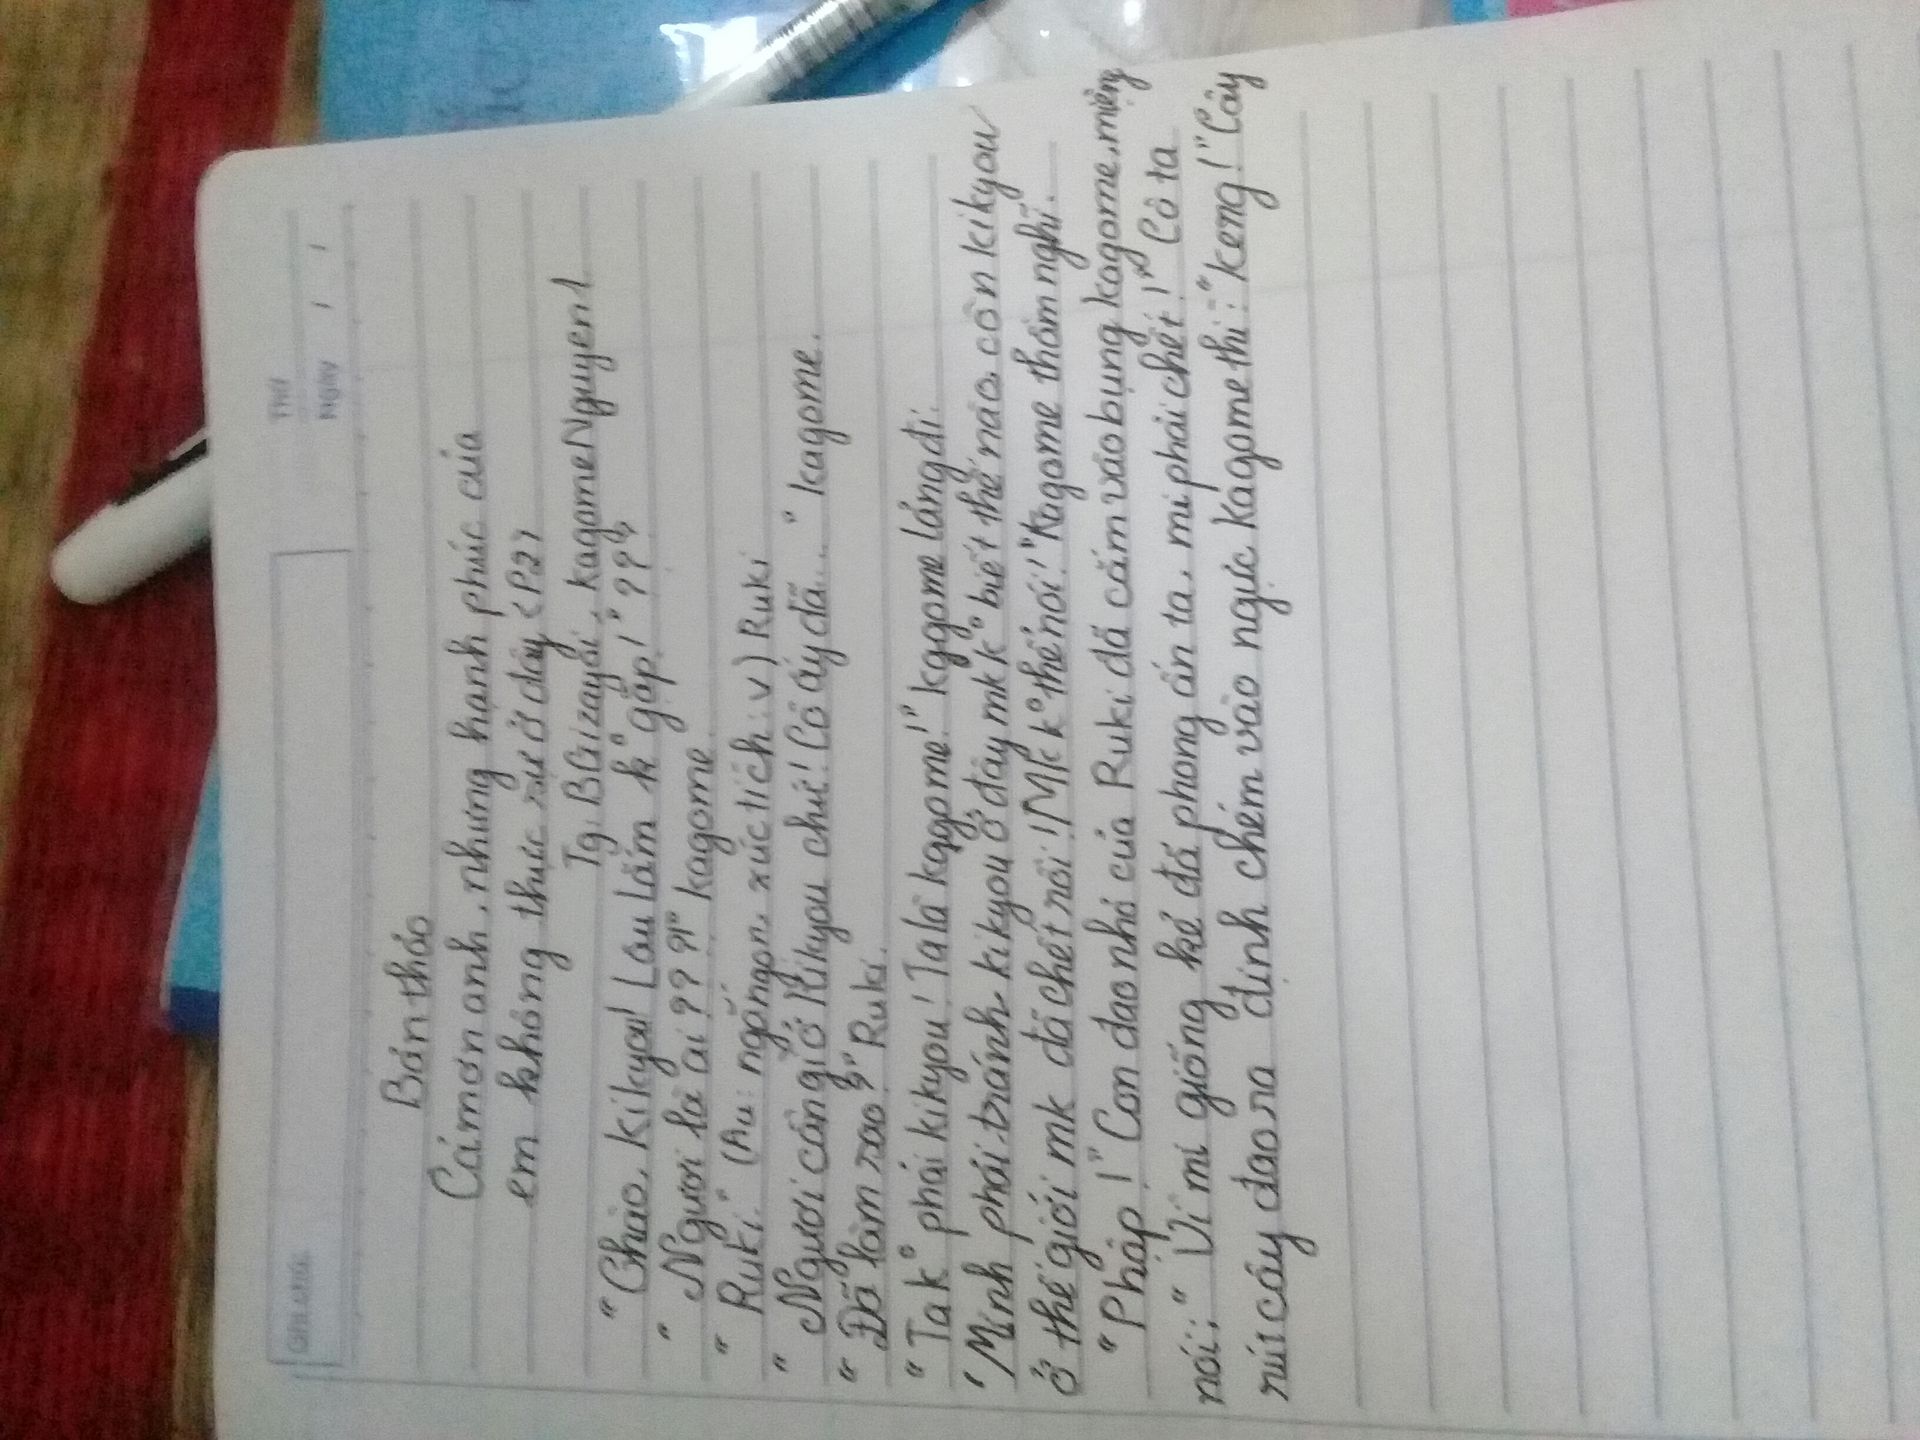 Ghi chú:
Thứ
Ngày / /
Bản thảo
Cảm ơn anh, nhưng hạnh phúc của
em không thực sự ở đây <P2>
Tg: Baizayai, kagomeNguyen1
"Chào, kikyou! Lâu lắm k° gặp!" ???
"Ngươi là ai???!" kagome.
"Ruki." (Au: ngắn gọn, xúc tích :v) Ruki
"Ngươi còn giở kikyou chứ! Cô ấy đã..." kagome.
"Đã làm sao?" Ruki.
"Ta k° phải kikyou! Ta là kagome!" kagome lảng đi.
"Mình phải tránh kikyou ở đây mk k° biết thế nào, còn kikyou
ở thế giới mk đã chết rồi! Mk k° thể nói!" kagome thầm nghĩ.
"Phập!" Con dao nhỏ của Ruki đã cắm vào bụng kagome, miệng
nói: "Vì mi giống kẻ đã phong ấn ta, mi phải chết!" Cô ta
rút cây dao ra định chém vào ngực kagome thì: "keng!" Cây